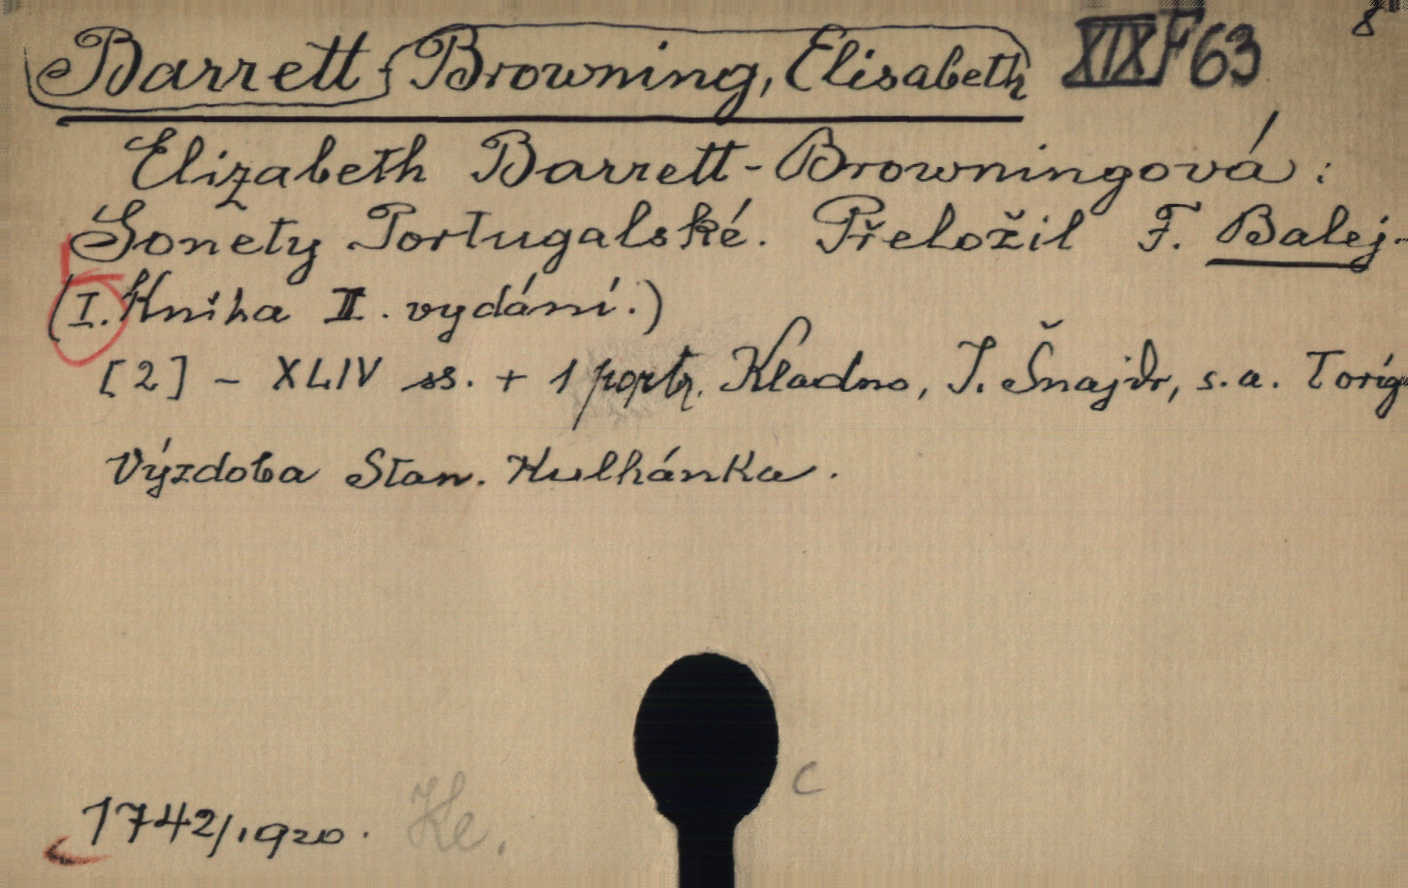 Barrett-Browning, Elisabeth XIX F 63 8°
Elizabeth Barrett-Browningová:
Sonety Portugalské. Přeložil F. Balej.-
(I. Kniha II. vydání.)
[2] - XLIV ss. + 1 portr. Kladno, J. Šnajdr, s.a. Torig
Výzdoba Stan. Kulhánka.
C
1742/1920. Ke.